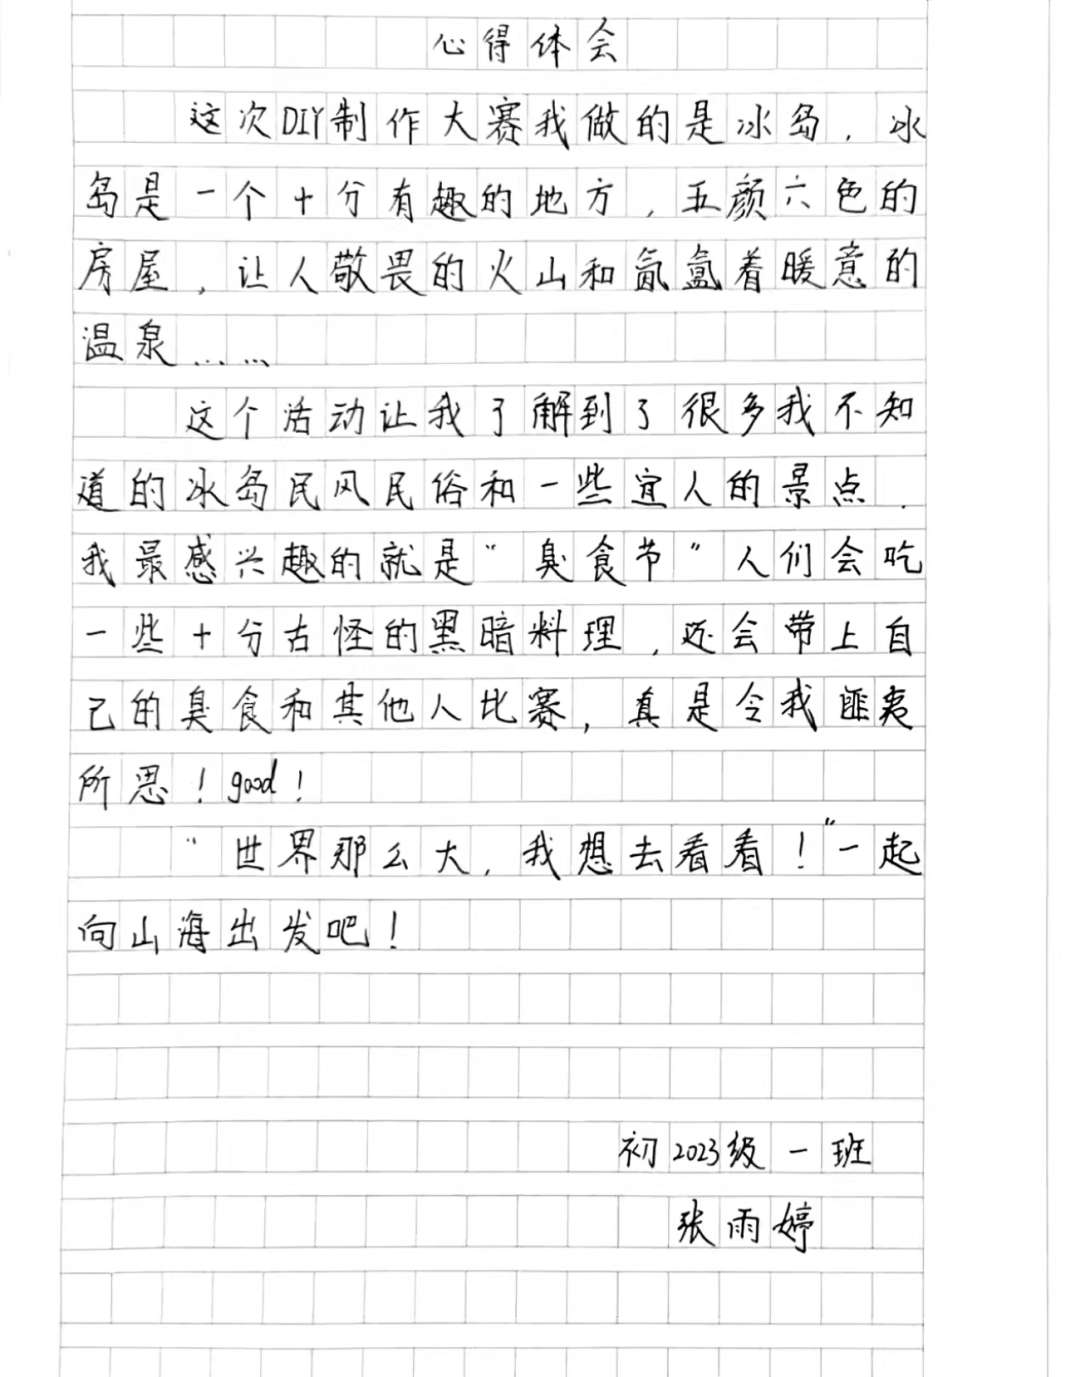 心得体会
这次DIY制作大赛我做的是冰岛，冰
岛是一个十分有趣的地方，五颜六色的
房屋，让人敬畏的火山和氤氲着暖意的
温泉……
这个活动让我了解到了很多我不知
道的冰岛民风民俗和一些宜人的景点．
我最感兴趣的就是“臭食节”人们会吃
一些十分古怪的黑暗料理，还会带上自
己的臭食和其他人比赛，真是令我匪夷
所思！good！
“世界那么大，我想去看看！”一起
向山海出发吧！
初2023级一班
张雨婷